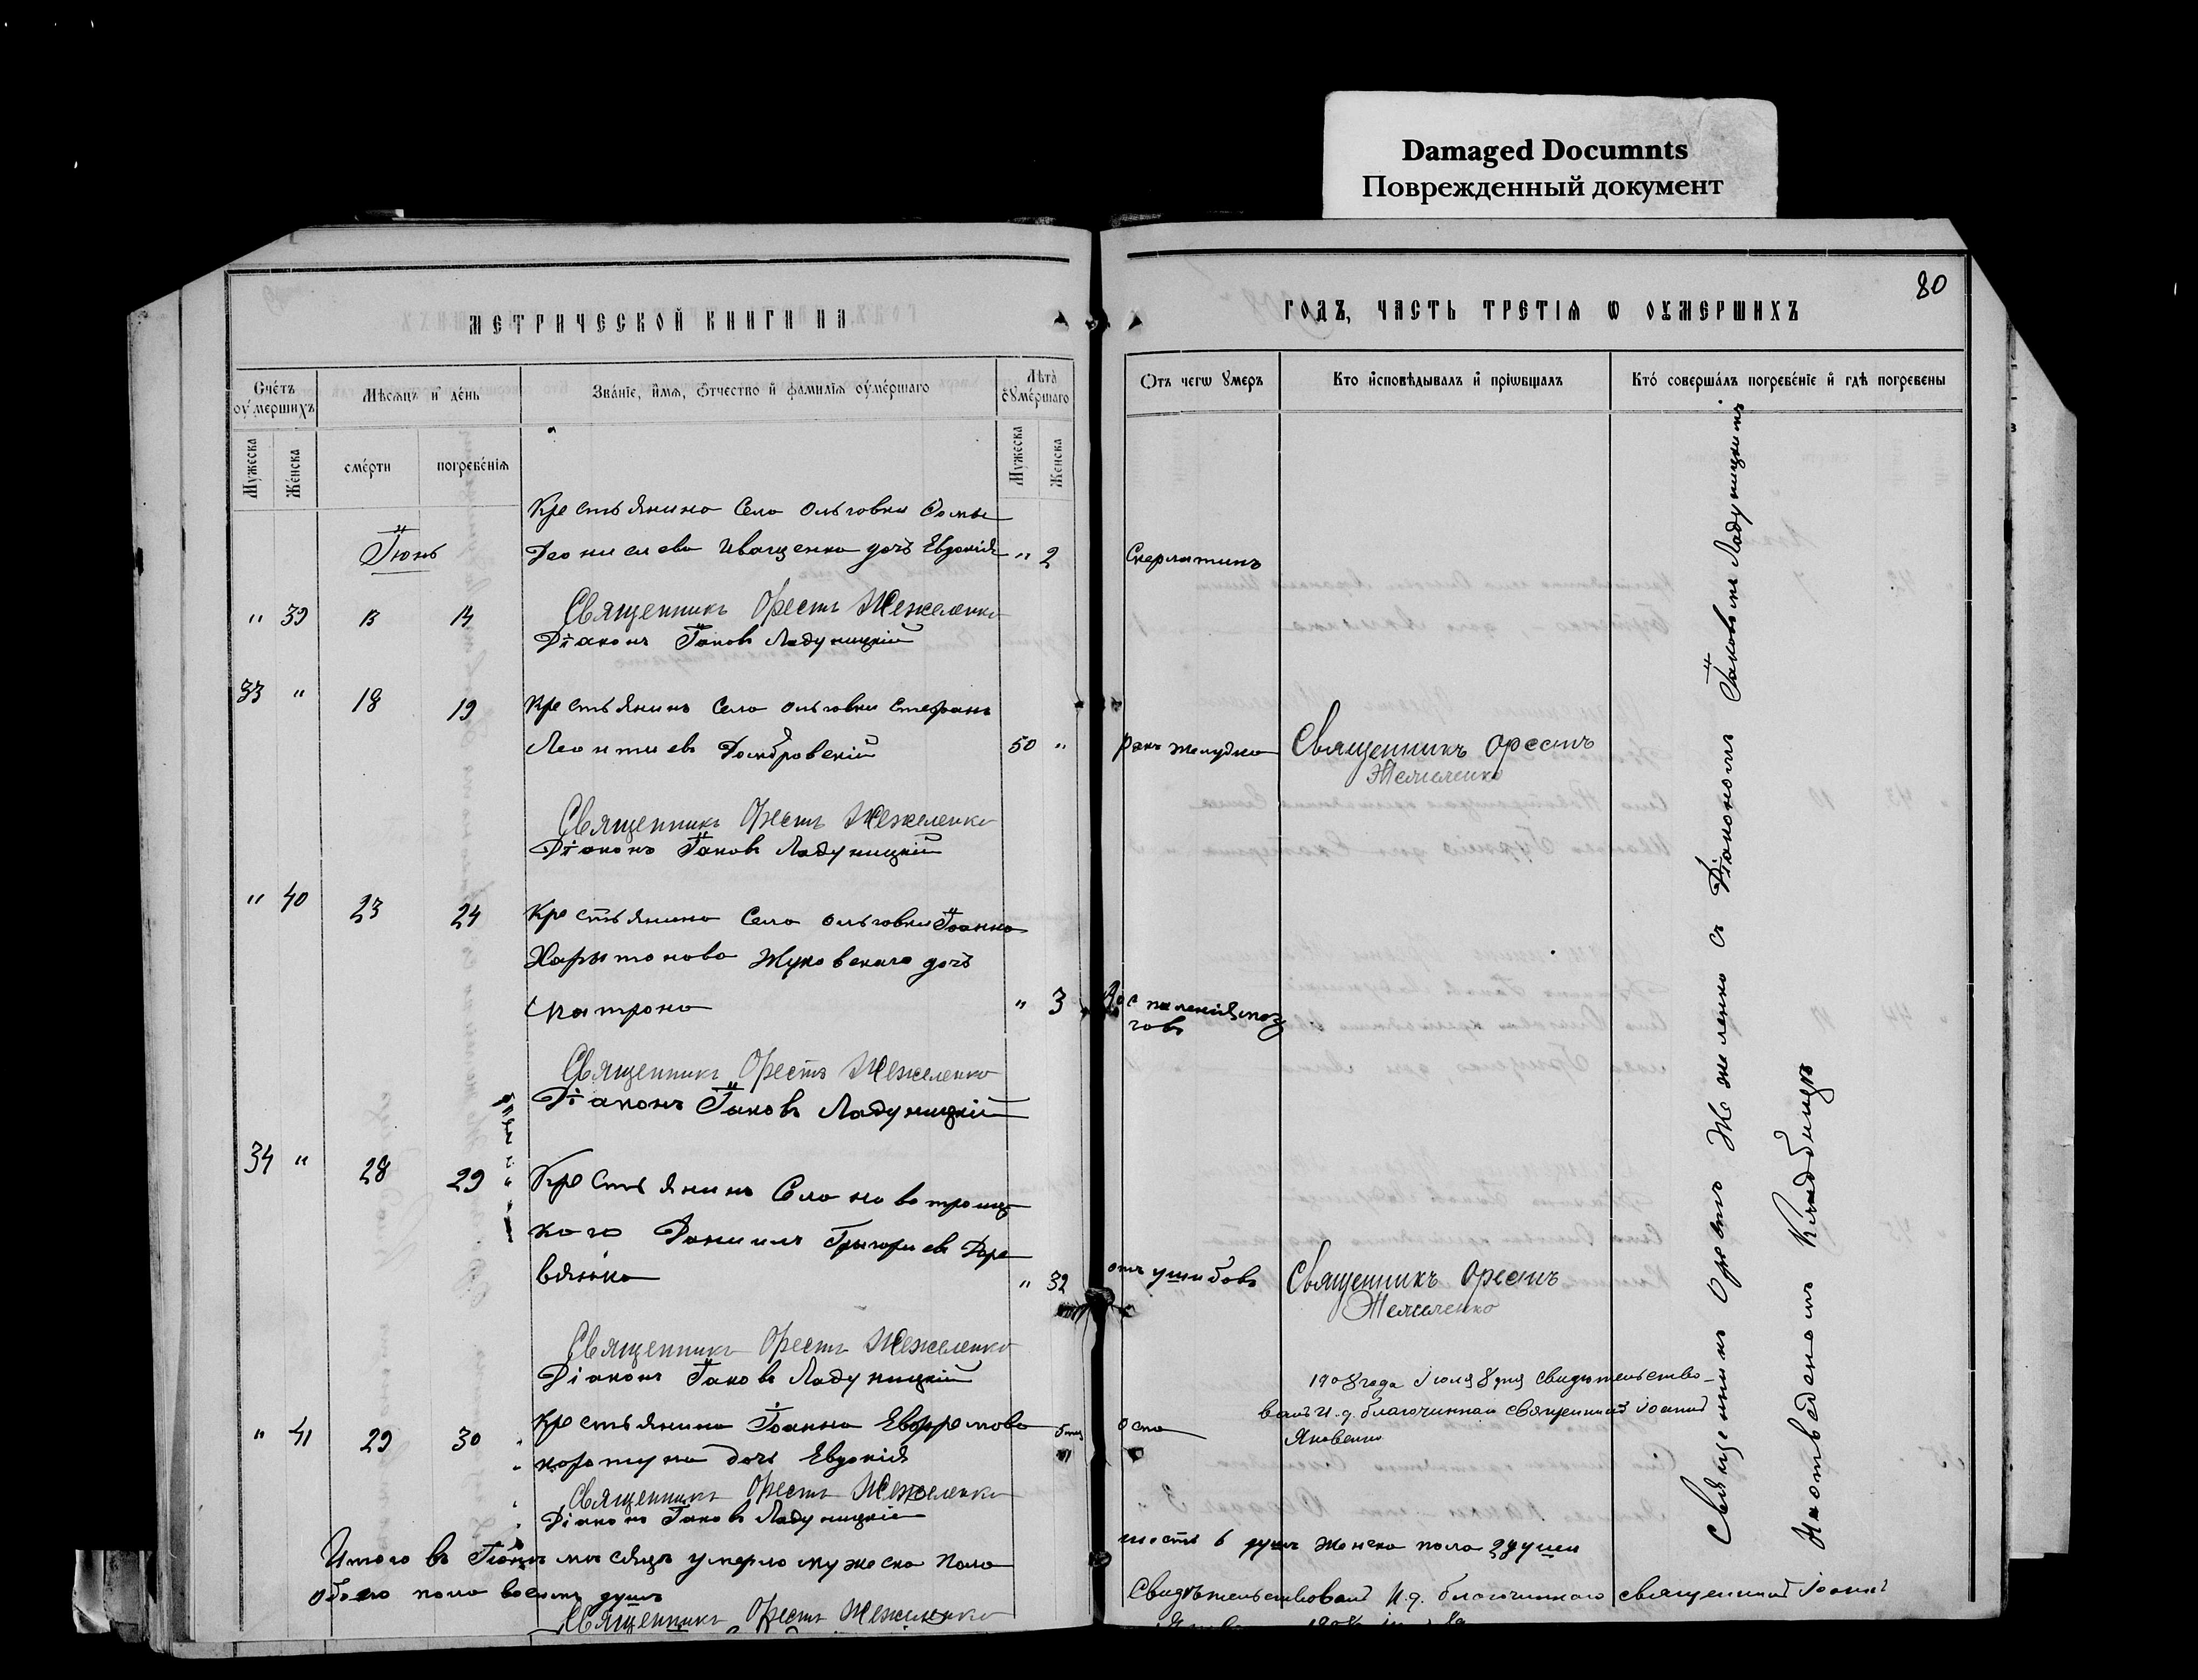 Damaged Documnts
Поврежденный документ
80
МЕТРИЧЕСКОЙ КНИГИ НА
ГОДЪ, ЧАСТЬ ТРЕТІѦ Ѡ ОУМЕРШИХЪ
Счетъ оумершихъ
Мѣсяцъ и день
Званіе, имя, отчество и фамилія оумершаго
Лѣта оумершаго
Мужеска
Женска
смерти
погребенія
Мужеска
Женска
Отъ чегѡ умеръ
Кто исповѣдывалъ и пріѡбщалъ
Кто совершалъ погребеніе и гдѣ погребены
Іюнь
Крестьянина Села Ольговки Фомы
Деонисиева Иващенка дочь Евдокія " 2 Скерлатинъ
" 39 13 14
Священникъ Орестъ Жежеленко
Діаконъ Іаковъ Ладуницкій
33 " 18 19 Крестьянинъ Села Ольговки Стефанъ
Леонтиевъ Домбровскій 50 " ракъ желудка Священникъ Орестъ
Жежеленко
Священникъ Орестъ Жежеленко
Діаконъ Іаковъ Ладуницкій
" 40 23 24 Крестьянина Села Ольговки Іоанна
Харытонова Жуковскаго дочь
Матрона " 3 Воспаленія моз
говъ
Священникъ Орестъ Жежеленко
Діаконъ Іаковъ Ладуницкій
34 " 28 29 Крестьянинъ Села новотроиц
кого Даниилъ Григориевъ Дере
вянка " 32 отъ ушибовъ Священникъ Орестъ
Жежеленко
Священникъ Орестъ Жежеленко
Діаконъ Іаковъ Ладуницкій
" 41 29 30 Крестьянина Іоанна Евфремова 5 мц Оспа
коротуна дочь Евдокія
Священникъ Орестъ Жежеленко
Діаконъ Іаковъ Ладуницкій
1908 года Іюля 8 дня свидѣтельство-
валъ И. д. благочиннаго священникъ Іоаннъ
Яковенко
Итого въ Іюнѣ мѣсяцѣ умерло мужеска пола
шесть 6 душъ женска пола 2 души
обоего пола восемь душъ
Священникъ Орестъ Жежеленко
Свидѣтельствовалъ И. д. благочиннаго священникъ Іоаннъ
Священникъ Орестъ Жежеленко съ Діакономъ Іаковомъ Ладуницкимъ
На отведеномъ Кладбищѣ